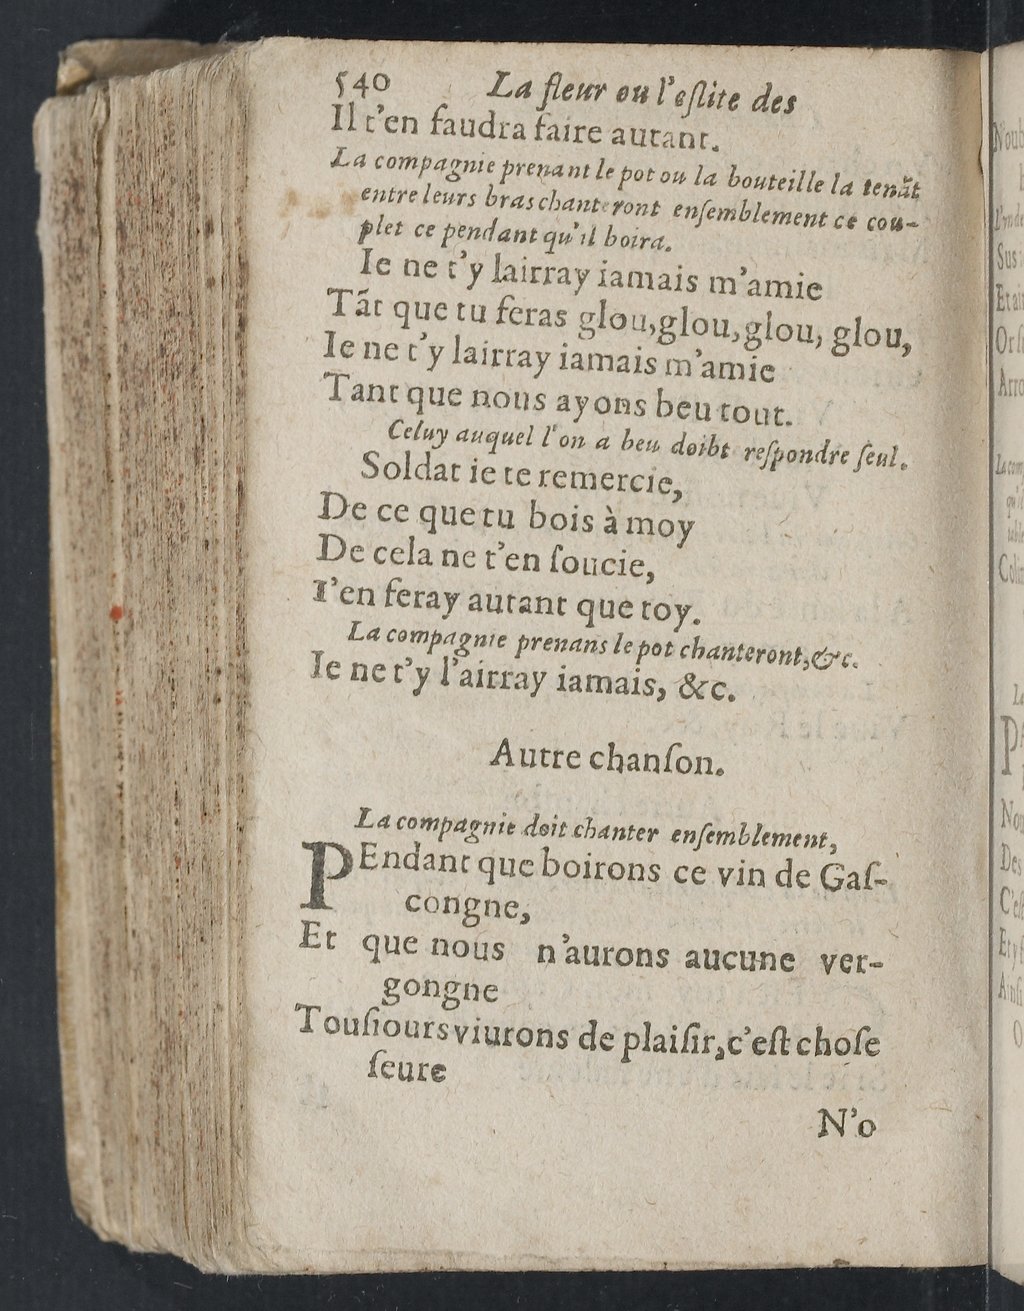 540 La fleur ou l'eſlite des
Il t'en faudra faire autant.
La compagnie prenant le pot ou la bouteille la tenãt
entre leurs bras chanteront enſemblement ce cou-
plet ce pendant qu'il boira.
Ie ne t'y lairray iamais m'amie
Tãt que tu feras glou,glou,glou, glou,
Ie ne t'y lairray iamais m'amie
Tant que nous ayons beu tout.
Celuy auquel l'on a beu doibt reſpondre ſeul.
Soldat ie te remercie,
De ce que tu bois à moy
De cela ne t'en ſoucie,
I'en feray autant que toy.
La compagnie prenans le pot chanteront,&c.
Ie ne t'y l'airray iamais, &c.
Autre chanſon.
La compagnie doit chanter enſemblement,
PEndant que boirons ce vin de Gaſ-
congne,
Et que nous n'aurons aucune ver-
gongne
Touſiours viurons de plaiſir,c'eſt choſe
ſeure
N'o